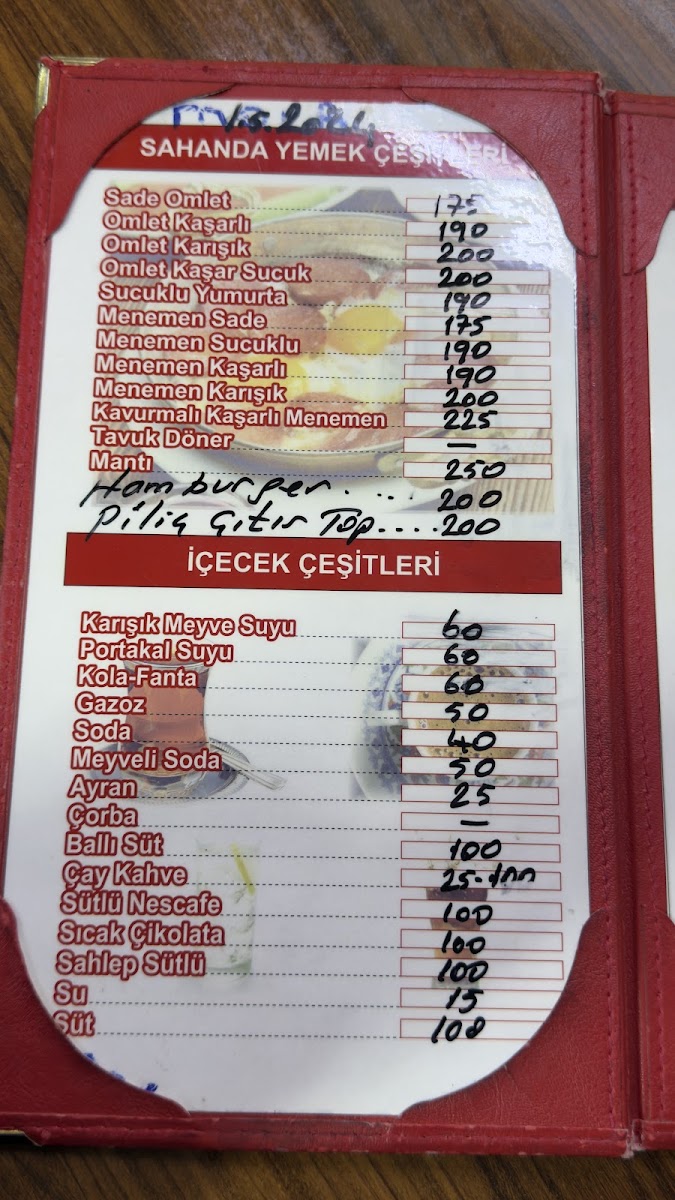 1.5.2024
SAHANDA YEMEK ÇEŞİTLERİ
Sade Omlet 175
Omlet Kaşarlı 190
Omlet Karışık 200
Omlet Kaşar Sucuk 200
Sucuklu Yumurta 190
Menemen Sade 175
Menemen Sucuklu 190
Menemen Kaşarlı 190
Menemen Karışık 200
Kavurmalı Kaşarlı Menemen 225
Tavuk Döner —
Mantı 250
Hamburger..... 200
Piliç Çıtır Top....200
İÇECEK ÇEŞİTLERİ
Karışık Meyve Suyu 60
Portakal Suyu 60
Kola-Fanta 60
Gazoz 50
Soda 40
Meyveli Soda 50
Ayran 25
Çorba —
Ballı Süt 100
Çay Kahve 25-100
Sütlü Nescafe 100
Sıcak Çikolata 100
Sahlep Sütlü 100
Su 15
Süt 100